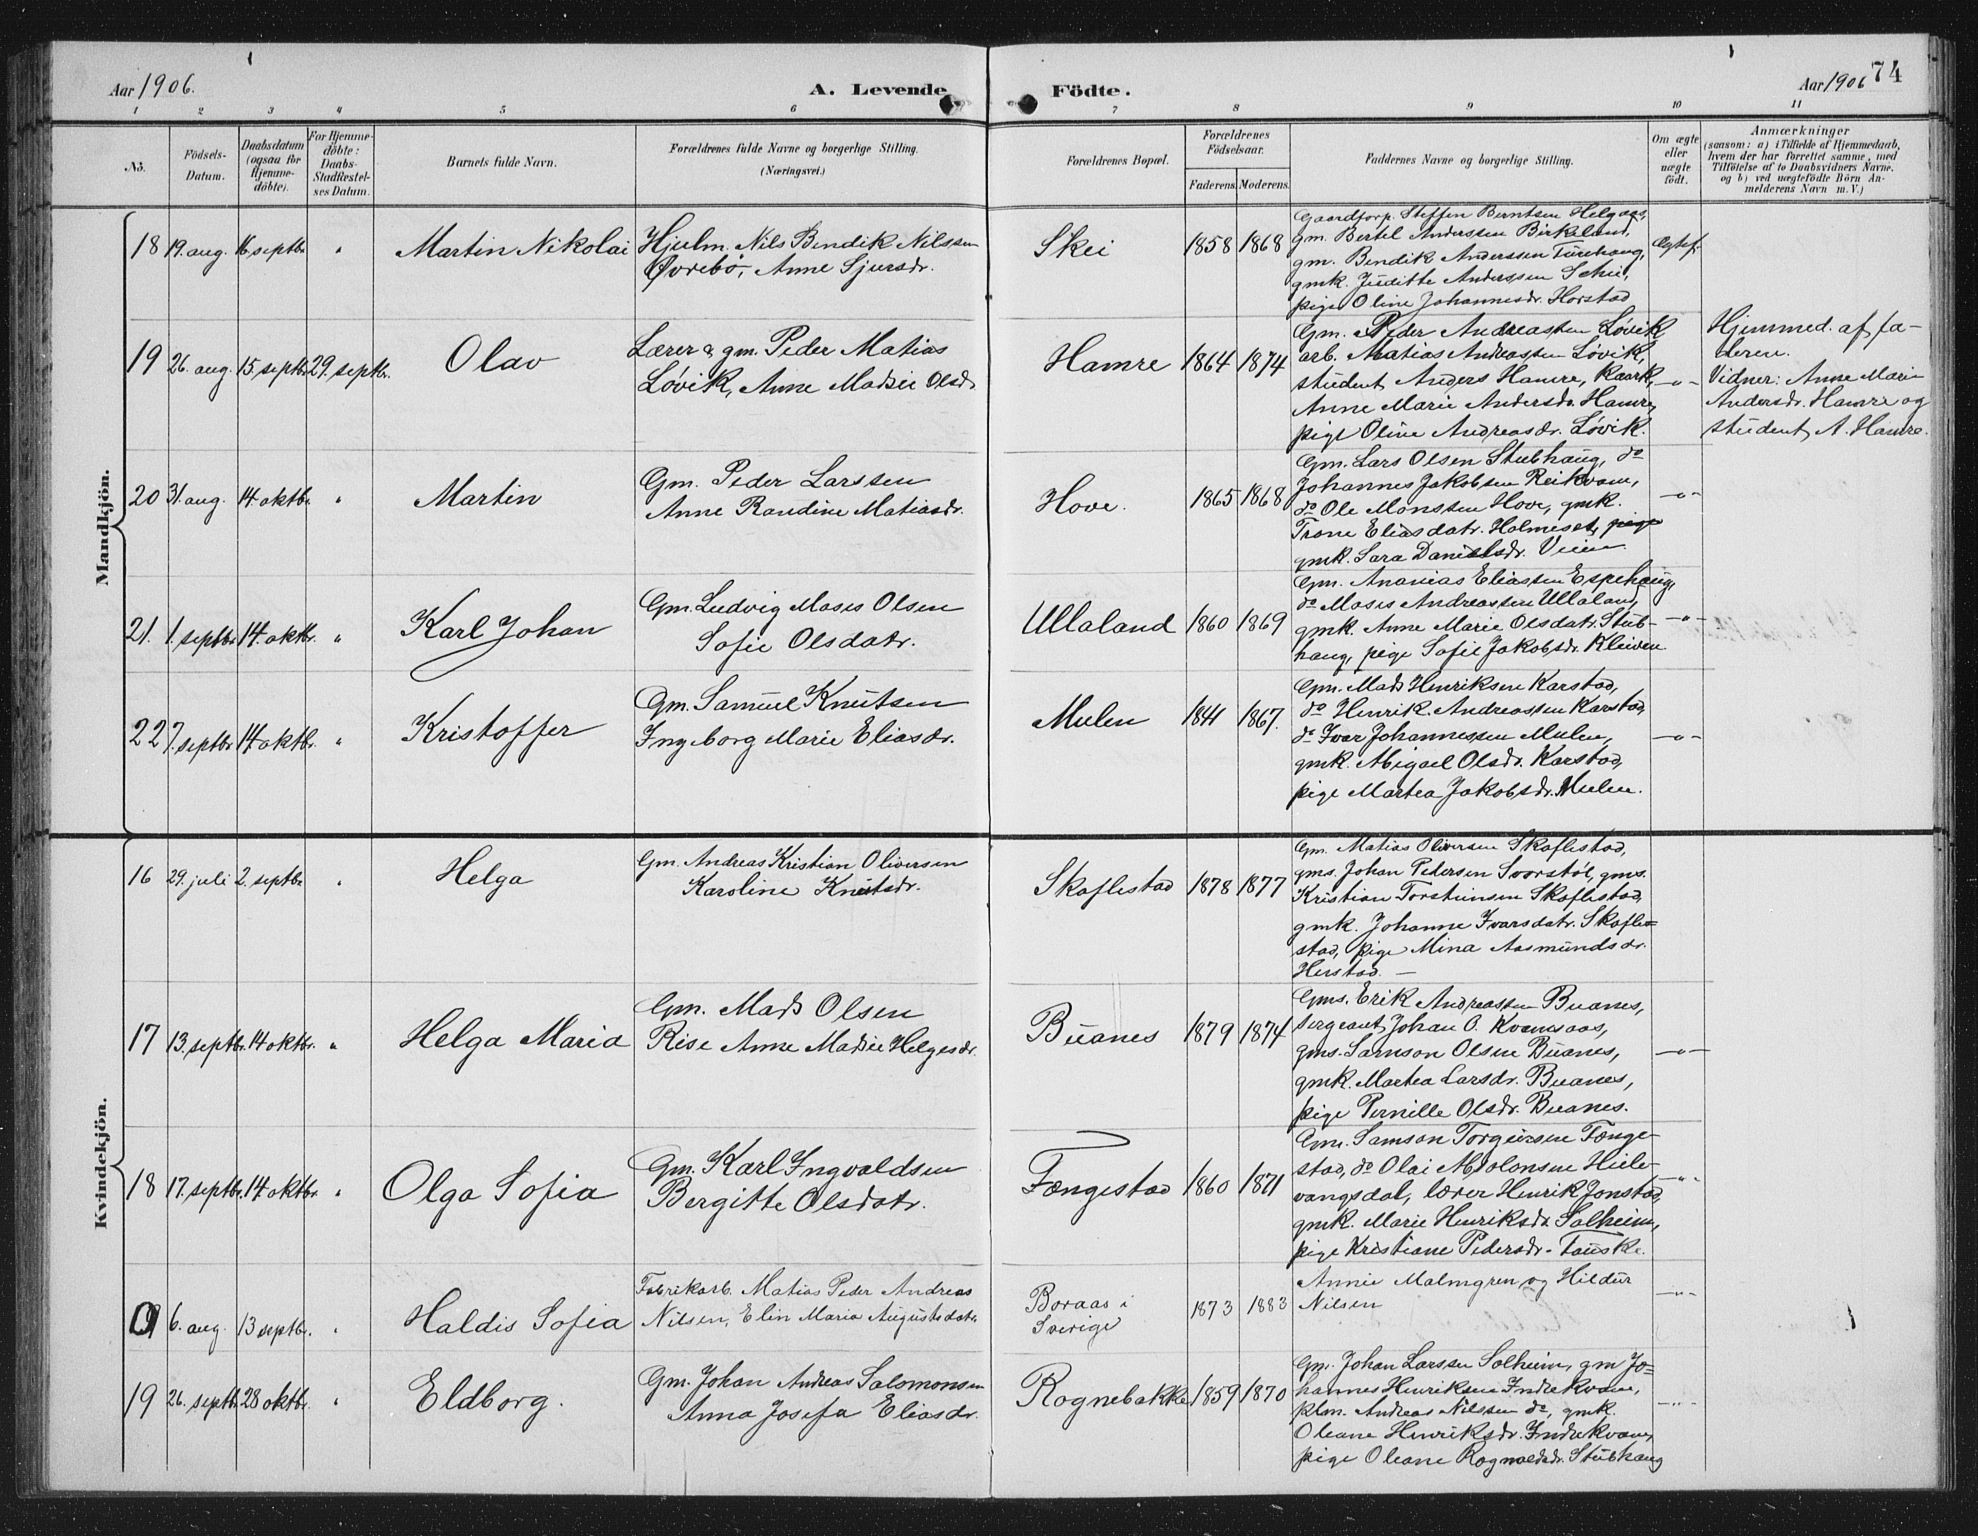 Aar 1906.
A. Levende
Födte.
Aar 1906
74
1 2 3 4 5 6 7 8 9 10 11
No.
Födsels-
Datum.
Daabsdatum
(ogsaa for
Hjemme-
döbte).
For Hjemme-
döbte:
Daabs-
Stadfestel-
ses Datum.
Barnets fulde Navn.
Forældrenes fulde Navne og borgerlige Stilling.
(Næringsvei.)
Forældrenes Bopæl.
Forældrenes
Födselsaar.
Faderens. Moderens.
Faddernes Navne og borgerlige Stilling.
Om ægte
eller
uægte
födt.
Anmærkninger
(saasom: a) i Tilfælde af Hjemmedaab,
hvem der har forrettet samme, med
Tilföielse af to Daabsvidners Navne,
og b) ved uægtefödte Börn An-
melderens Navn m. V.)
Mandkjön.
18 19. aug. 16 septbr. " Martin Nikolai
Hjulm. Nils Bendik Nilssen
Øvrebø, Anne Sjursdr.
Skei 1858 1868
Gaardforp. Steffen Berntsen Helgaas,
gm. Bertel Anderssen Birkeland,
gm. Bendik Anderssen
gmk. Juditte Anderssen
pige Oline Johannesdr. Horstad
Ægtef.
19 26. aug. 15 septbr. 29. septbr. Olav
Lærer & gm. Peder Matias
Løvik, Anne Madsie Olsdr.
Hamre 1864 1874
Gm. Peder Andreassen Løvik
arb. Matias Andreassen Løvik,
student Anders Hamre,
Anne Marie Andersdr. Hamre,
pige Oline Andreasdr. Løvik.
—"—
Hjemmed. af fa-
deren.
Vidner: Anne Marie
Andersdr. Hamre og
student A. Hamre.
20 31. aug. 14. oktbr. " Martin
Gm. Peder Larssen
Anne Randine Matiasdr.
Hove. 1865 1868
Gm. Lars Olsen Stubhaug, do
Johannes Jakobsen Reikvam,
do Ole Monssen Hove, gmk.
Trone Eliasdatr. Holmeset, pige
gmk. Sara Danielsdr. Veien
—"—
21. 1. septbr. 14. oktbr. " Karl Johan
Gm. Ludvig Moses Olsen
Sofie Olsdatr.
Ullaland 1860 1869
Gm. Ananias Eliassen Espehaug,
do Moses Andreassen Ullaland,
gmk. Anne Marie Olsdatr. Stub-
haug, pige Sofie Jakobsdr. Kleiven
—"—
22 7. septbr. 14. oktbr. " Kristoffer
Gm. Samuel Knutsen
Ingeborg Marie Eliasdr.
Mulen 1841 1867.
Gm. Mads Henriksen Karstad,
do Henrik Andreassen Karstad,
do Ivar Johannessen Mulen,
gmk. Abigael Olsdr. Karstad,
pige Martea Jakobsdr. Mulen.
—"—
Kvindekjön.
16 29. juli 2. septbr. " Helga
Gm. Andreas Kristian Oliversen
Karoline Knutsdr.
Skaflestad 1878 1877
Gm. Matias Oliversen Skaflestad,
gms. Johan Pedersen Svorstøl, gms.
Kristian Torsteinsen Skaflestad,
gmk. Johanne Ivarsdatr. Skafle=
stad, pige Mina Aasmundsdr.
Herstad. —
17 13. septbr. 14 oktbr. " Helga Maria
Gm. Mads Olsen
Rise Anne Madsie Helgesdr.
Buanes 1879 1874
Gms. Erik Andreassen Buanes,
sergeant Johan O. Kvamsaas,
gms. Samson Olsen Buanes,
gmk. Martea Larsdr. Buanes,
pige Pernille Olsdr. Buanes.
—"—
18 17. septbr. 14. oktbr. " Olga Sofia
Gm. Karl Ingvaldsen
Bergitte Olsdatr.
Fængestad 1860 1871
Gm. Samson Torgeirsen Fænge-
stad, do Olai Heile-
vangsdal, lærer Henrik Jonstad,
gmk. Marie Henriksdr. Solheim,
pige Kristiane Pedersdr. Fauske.
—"—
6. aug. 13 septbr. " Haldis Sofia
Fabrikarb. Matias Peder Andreas
Nilsen, Elin Maria Augustsdatr.
Boraas i
Sverige
1873 1883
Annie Malmgren og Hildur
Nilsen
—"—
19 26. septbr. 28 oktbr. " Eldborg.
Gm. Johan Andreas Salomonsen
Anna Josefa Eliasdr.
Rognebakke 1859 1870
Gm. Johan Larssen Solheim, gm Jo=
hannes Henriksen Indrekvam,
plm. Andreas Nilssen do, gmk.
Oleane Henriksdr. Indrekvam,
pige Oleane Rognaldsdr. Stubhaug
—"—